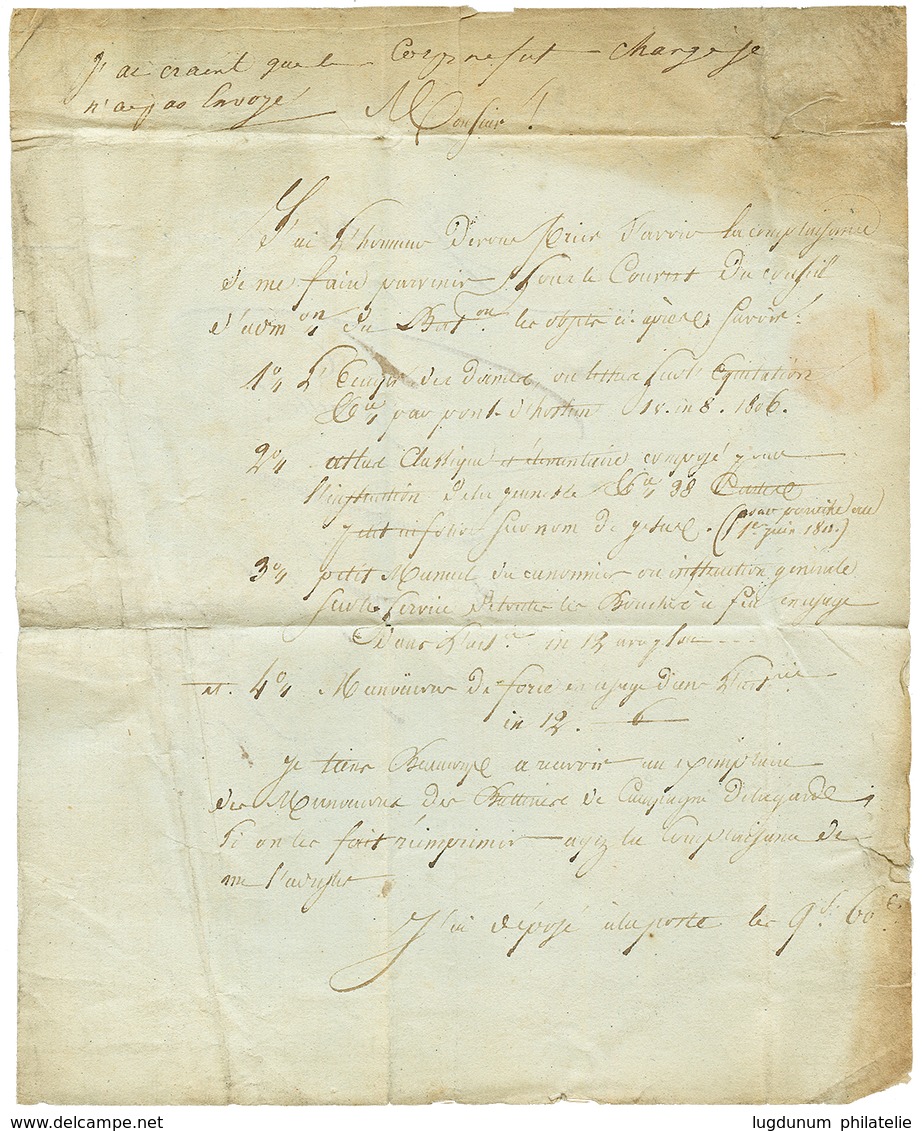 J'ai craint que le Corps ne fut changé je
n'ai pas Envoyé
Monsieur !
J'ai L'honneur de vous Prier d'avoir la complaisance
de me faire parvenir sous le Couvert du conseil
d'adm.on du Bat.on les objets ci après, Savoir :
1° L' des dames ou lettres sur l'Equitation
par pons d'hostun 1 v. in 8. 1806.
2° atlas Classique et élémentaire composé pour
l'instruction de la jeunesse 38 Cartes
petit in folio sur nom de jesus. (pour paroitre au
1er juin 18)
3° petit Manuel du canonnier ou instruction générale
sur le service de toutes les Bouches à feu en usage
Dans L'art.ie in 12
et. 4° Manœuvres de force en usage dans L'art.ie
in 12. 6
Je tiens Beaucoup a recevoir un exemplaire
des Manœuvres des Batteries de Campagne De la garde ;
Si on les fait réimprimer ayez la Complaisance de
me l'
J'ai déposé à la poste les 9f. 60c.
www.delcampe.net
lugdunum philatelie